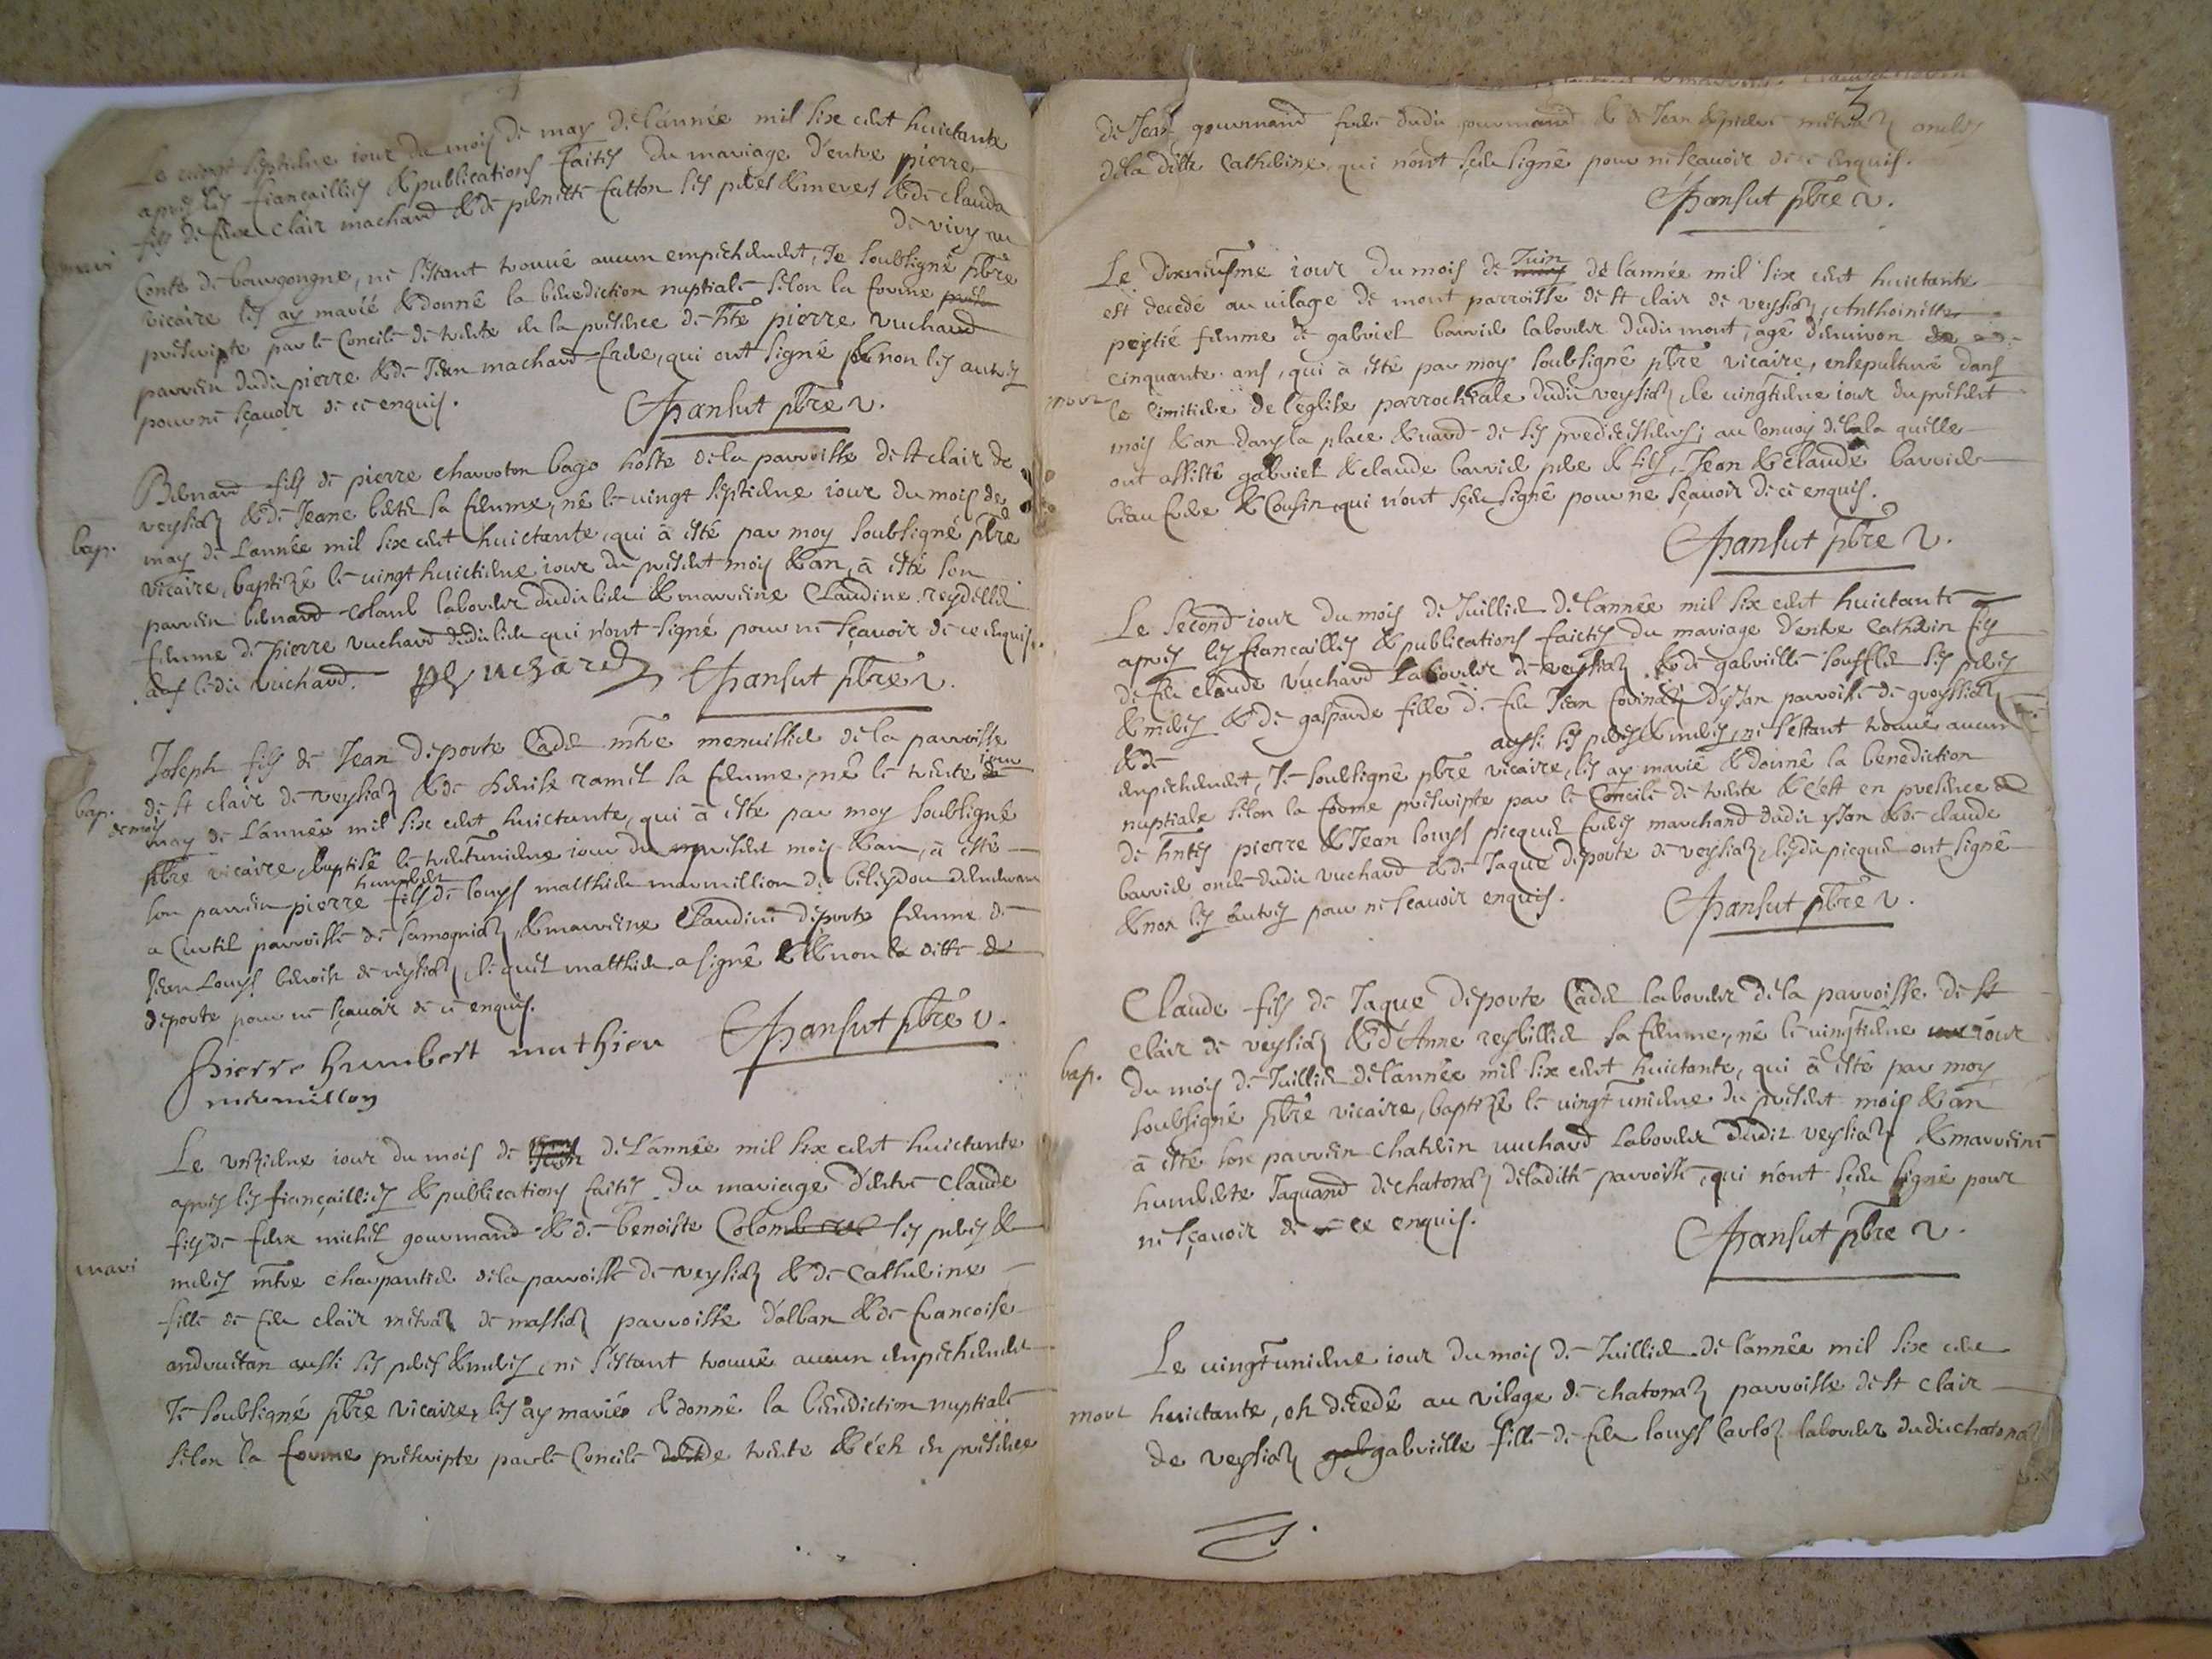 Le vingt septieme iour du mois de may de l'année mil six cent huictante
apres les fiancailles & publications faites du mariage d'entre pierre
fils de feux clair machard & de pernette fatton ses peres & meres & de clauda
de viry au
mari
Conté de bourgongne, ne s'estant trouué aucun empechement, Je soubsigné pbre
vicaire les ay marié & donné la benediction nuptiale selon la forme
prescripte par le Concile de trente en la presence de hte pierre vuchard
parrein dudit pierre & de Jean machard frere, qui ont signé & non les autres
pour ne sçavoir de ce enquis.
Pansut pbre v.
Bernard fils de pierre charroton hoste de la parroisse de st clair de
veysiaz & de Jeane sa femme, né le vingt septieme iour du mois de
bap.
may de L'année mil six cent huictante, qui à esté par moy soubsigné pbre
vicaire, baptizé le vingt huictieme iour du present mois & an, à esté son
parrein bernard Colomb laboureur dudit lieu & marreine Claudine reydellet
femme de pierre vuchard dudit lieu qui n'ont signé pour ne sçavoir de ce enquis.
ledit vuchard. P vuchard Pansut pbre v.
Joseph fils de Jean deporte Cadet mtre menuissier de la parroisse
bap.
de st clair de veysiaz & de Denise ramel sa femme, né le trente iour
de mois
may de L'année mil six cent huictante, qui à esté par moy soubsigné
pbre vicaire, baptisé le trentunieme iour du present mois & an, à esté
humbert
son parrein pierre fils de louys matthieu marmillion de demeurant
a Curtil parroisse de samogniaz, & marreine Claudine deporte femme de
Jean Louys benoist de veysiaz, lequel matthieu a signé & non la ditte de
deporte pour ne sçavoir de ce enquis.
Pierre humbert mathieu Pansut pbre v.
mermillon
Le unzieme iour du mois de Juin de L'année mil six cent huictante
apres les fiançailles & publications faites du mariage d'entre Claude
fils de feux michel gourmand & de benoiste Colomb ses peres &
mari
meres mtre charpantier de la parroisse de veysiaz & de Catherine
fille de feu clair metraz de massiaz parroisse d'alban & de francoise
andruetan aussi ses peres & meres, ne s'estant trouué aucun empechement
Je soubsigné pbre vicaire, les ay mariés & donné la benediction nuptiale
selon la forme prescripte par le Concile de trente & c'est en presence
3
de Jean gourmand frere dudit gourmand & de Jean & pierre metraz oncles
de la ditte Catherine, qui n'ont sçeu signé pour ne sçavoir de ce enquis.
Pansut pbre v.
Juin
Le dixneufme iour du mois de may de l'année mil six cent huictante
est decedé au vilage de mont parroisse de st clair de veysiaz, Anthoinette
peytié femme de gabriel barrier laboureur dudit mont, agé d'enuiron
cinquante ans, qui à esté par moy soubsigné pbre vicaire, ensepulturé dans
mort
le cimitiere de l'eglise parrochiale dudit veysiaz, le vingtieme iour du present
mois & an dans la place & vard de ses predecesseurs; au Convoy de la quelle
ont assisté gabriel & claude barrier pere & fils, Jean & claude barrier
beau frere & Cousin, qui n'ont sçeu signé pour ne sçavoir de ce enquis.
Pansut pbre v.
Le second iour du mois de Juillet de l'année mil six cent huictante
apres les fiancailles & publications faictes du mariage d'entre Cathrin fils
de feu claude vuchard laboureur de veysiaz & de gabrielle soufflet ses peres
& meres & de gasparde fille de feu Jean d'ysan parroisse de groyssiaz
& de aussi ses peres & meres, ne s'estant trouué aucun
empechement, Je soubsigné pbre vicaire, les ay marié & donné la benediction
nuptiale selon la forme prescripte par le Concile de trente & c'est en presence
de hntes pierre & Jean louys picquet freres marchand dudit ysan & de claude
barrier oncle dudit vuchard & de Jaque deporte de veysiaz, lesdit picquet ont signé
& non les autres pour ne sçavoir enquis.
Pansut pbre v.
Claude fils de Jaque deporte Cadet laboureur de la parroisse de st
clair de veysiaz & d'Anne reybillier sa femme, né le vingtieme iour
bap.
du mois de Juillet de l'année mil six cent huictante, qui à esté par moy
soubsigné pbre vicaire, baptizé le vingt unieme du present mois & an
à esté son parrein Chatherin vuchard Laboureur dudit veysiaz & marreine
humberte Jaquand de chatonaz de ladite parroisse, qui n'ont sçeu signé pour
ne sçavoir de ce enquis.
Pansut pbre v.
Le vingt unieme iour du mois de Juillet de l'année mil six cent
mort
huictante, est decedé au vilage de chatonaz parroisse de st clair
de veysiaz gab gabrielle fille de feu louys Carloz laboureur dudit chatonaz